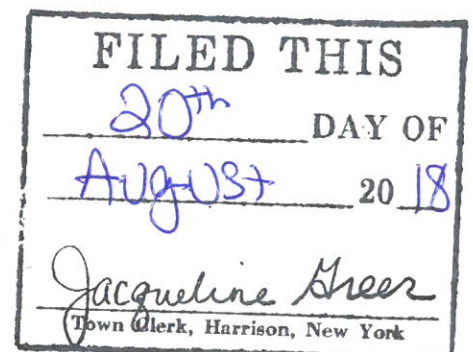 FILED THIS
20th DAY OF
August 20 18
Jacqueline Greer
Town Clerk, Harrison, New York